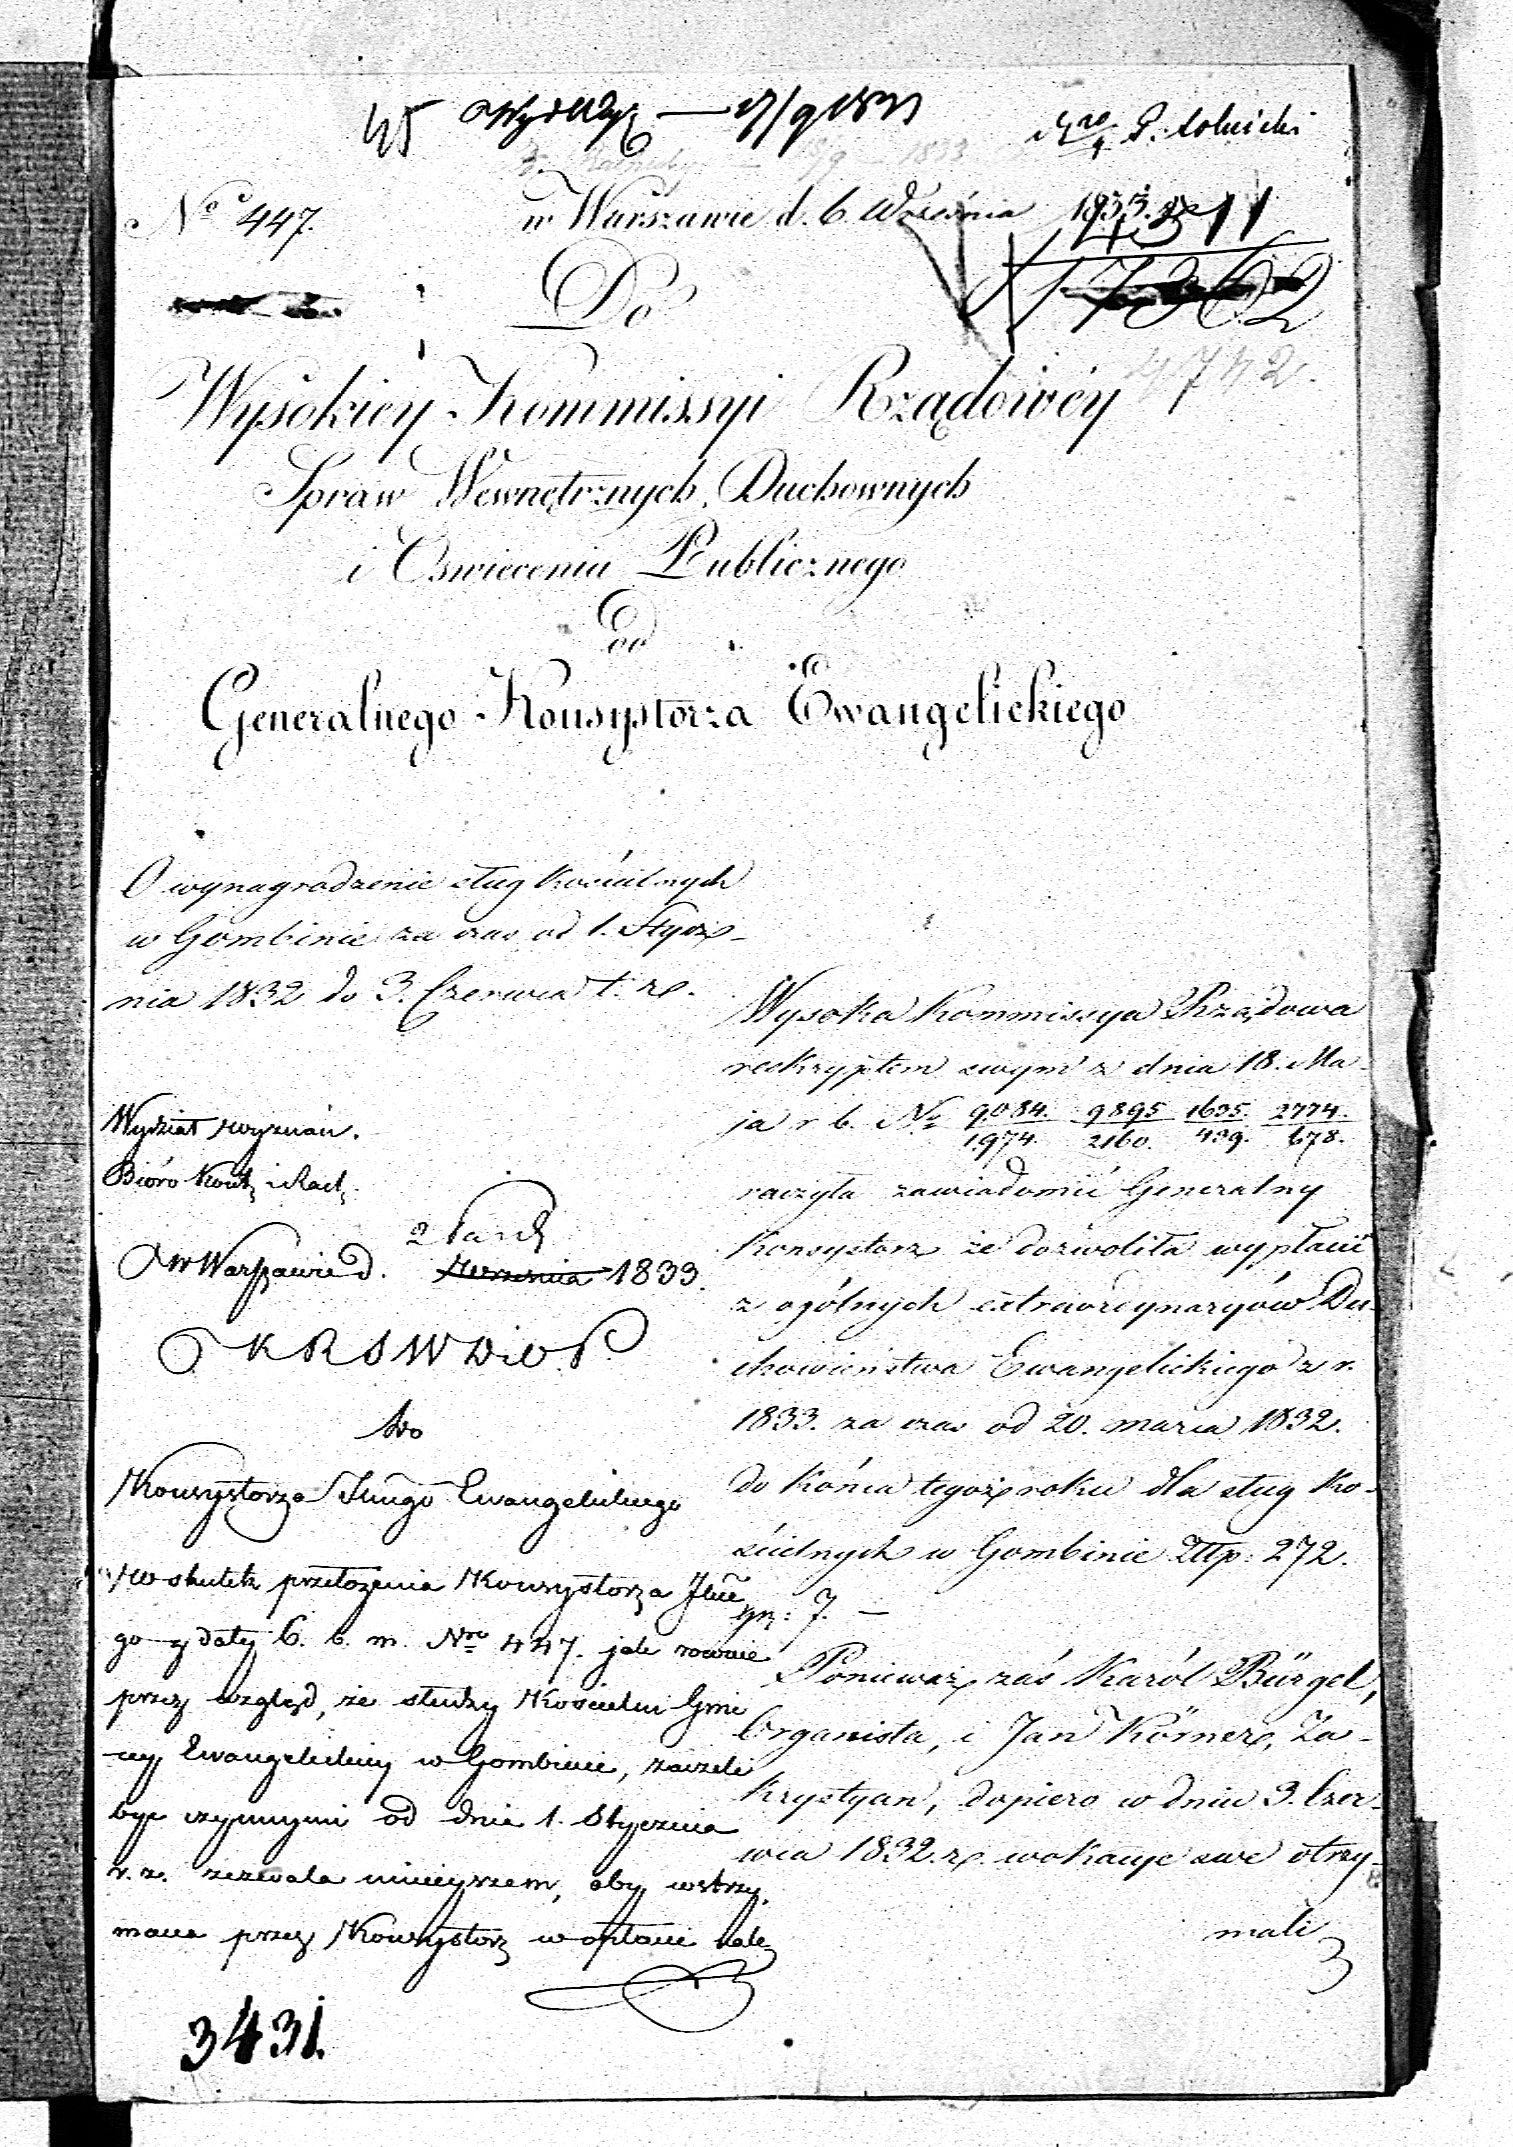 45
17/9 1833
No 447.
w Warszawie d. 6 Września 1833.
4311
Do
17362
4742.
Wysokiey Kommissyi Rządowéy
Spraw Wewnętrznych, Duchownych
i Oswiecenia Publicznego
Od
Generalnego Konsystorza Ewangelickiego
O wynagrodzenie sług kościelnych
w Gombinie za czas od 1. Stycz-
nia 1832 do 3. Czerwca t. r.
Wydział wyznań.
Bióro Kont. i Rach.
w Warszawie d. 1833.
K R S W D i O P.
Do
Konsystorza Jlnego Ewangelickiego
W skutek przełożenia Konsystorza Jlne
go z daty 6. b. m. Nro 447. jak rownie
przez wzgląd, że słudzy Kościelni Gmi
ny Ewangelickiey w Gombinie, zaczeli
byc czynnymi od dnia 1. Stycznia
r. z. zezwala ninieyszem, aby wstrzy-
mana przez Konsystorz wypłata nale
3431.
Wysoka Kommissya Rządowa
reskryptem swym z dnia 18. Ma-
ja r. b. No 9084./1974. 9895/2160. 1635./439. 2774./678.
raczyła zawiadomić Generalny
Konsystorz że dozwoliła wypłacić
z ogólnych extraordynaryów Du-
chowieństwa Ewangelickiego z r.
1833. za czas od 20. marca 1832.
do końca tegoż roku dla sług ko-
ścielnych w Gombinie Złtp: 272.
gr: 7. —
Ponieważ zaś Karól Bürgel,
Organista, i Jan Körner, Za-
krystyan, dopiero w dniu 3. Czer-
wca 1832. r. wokacye swe otrzy-
mali